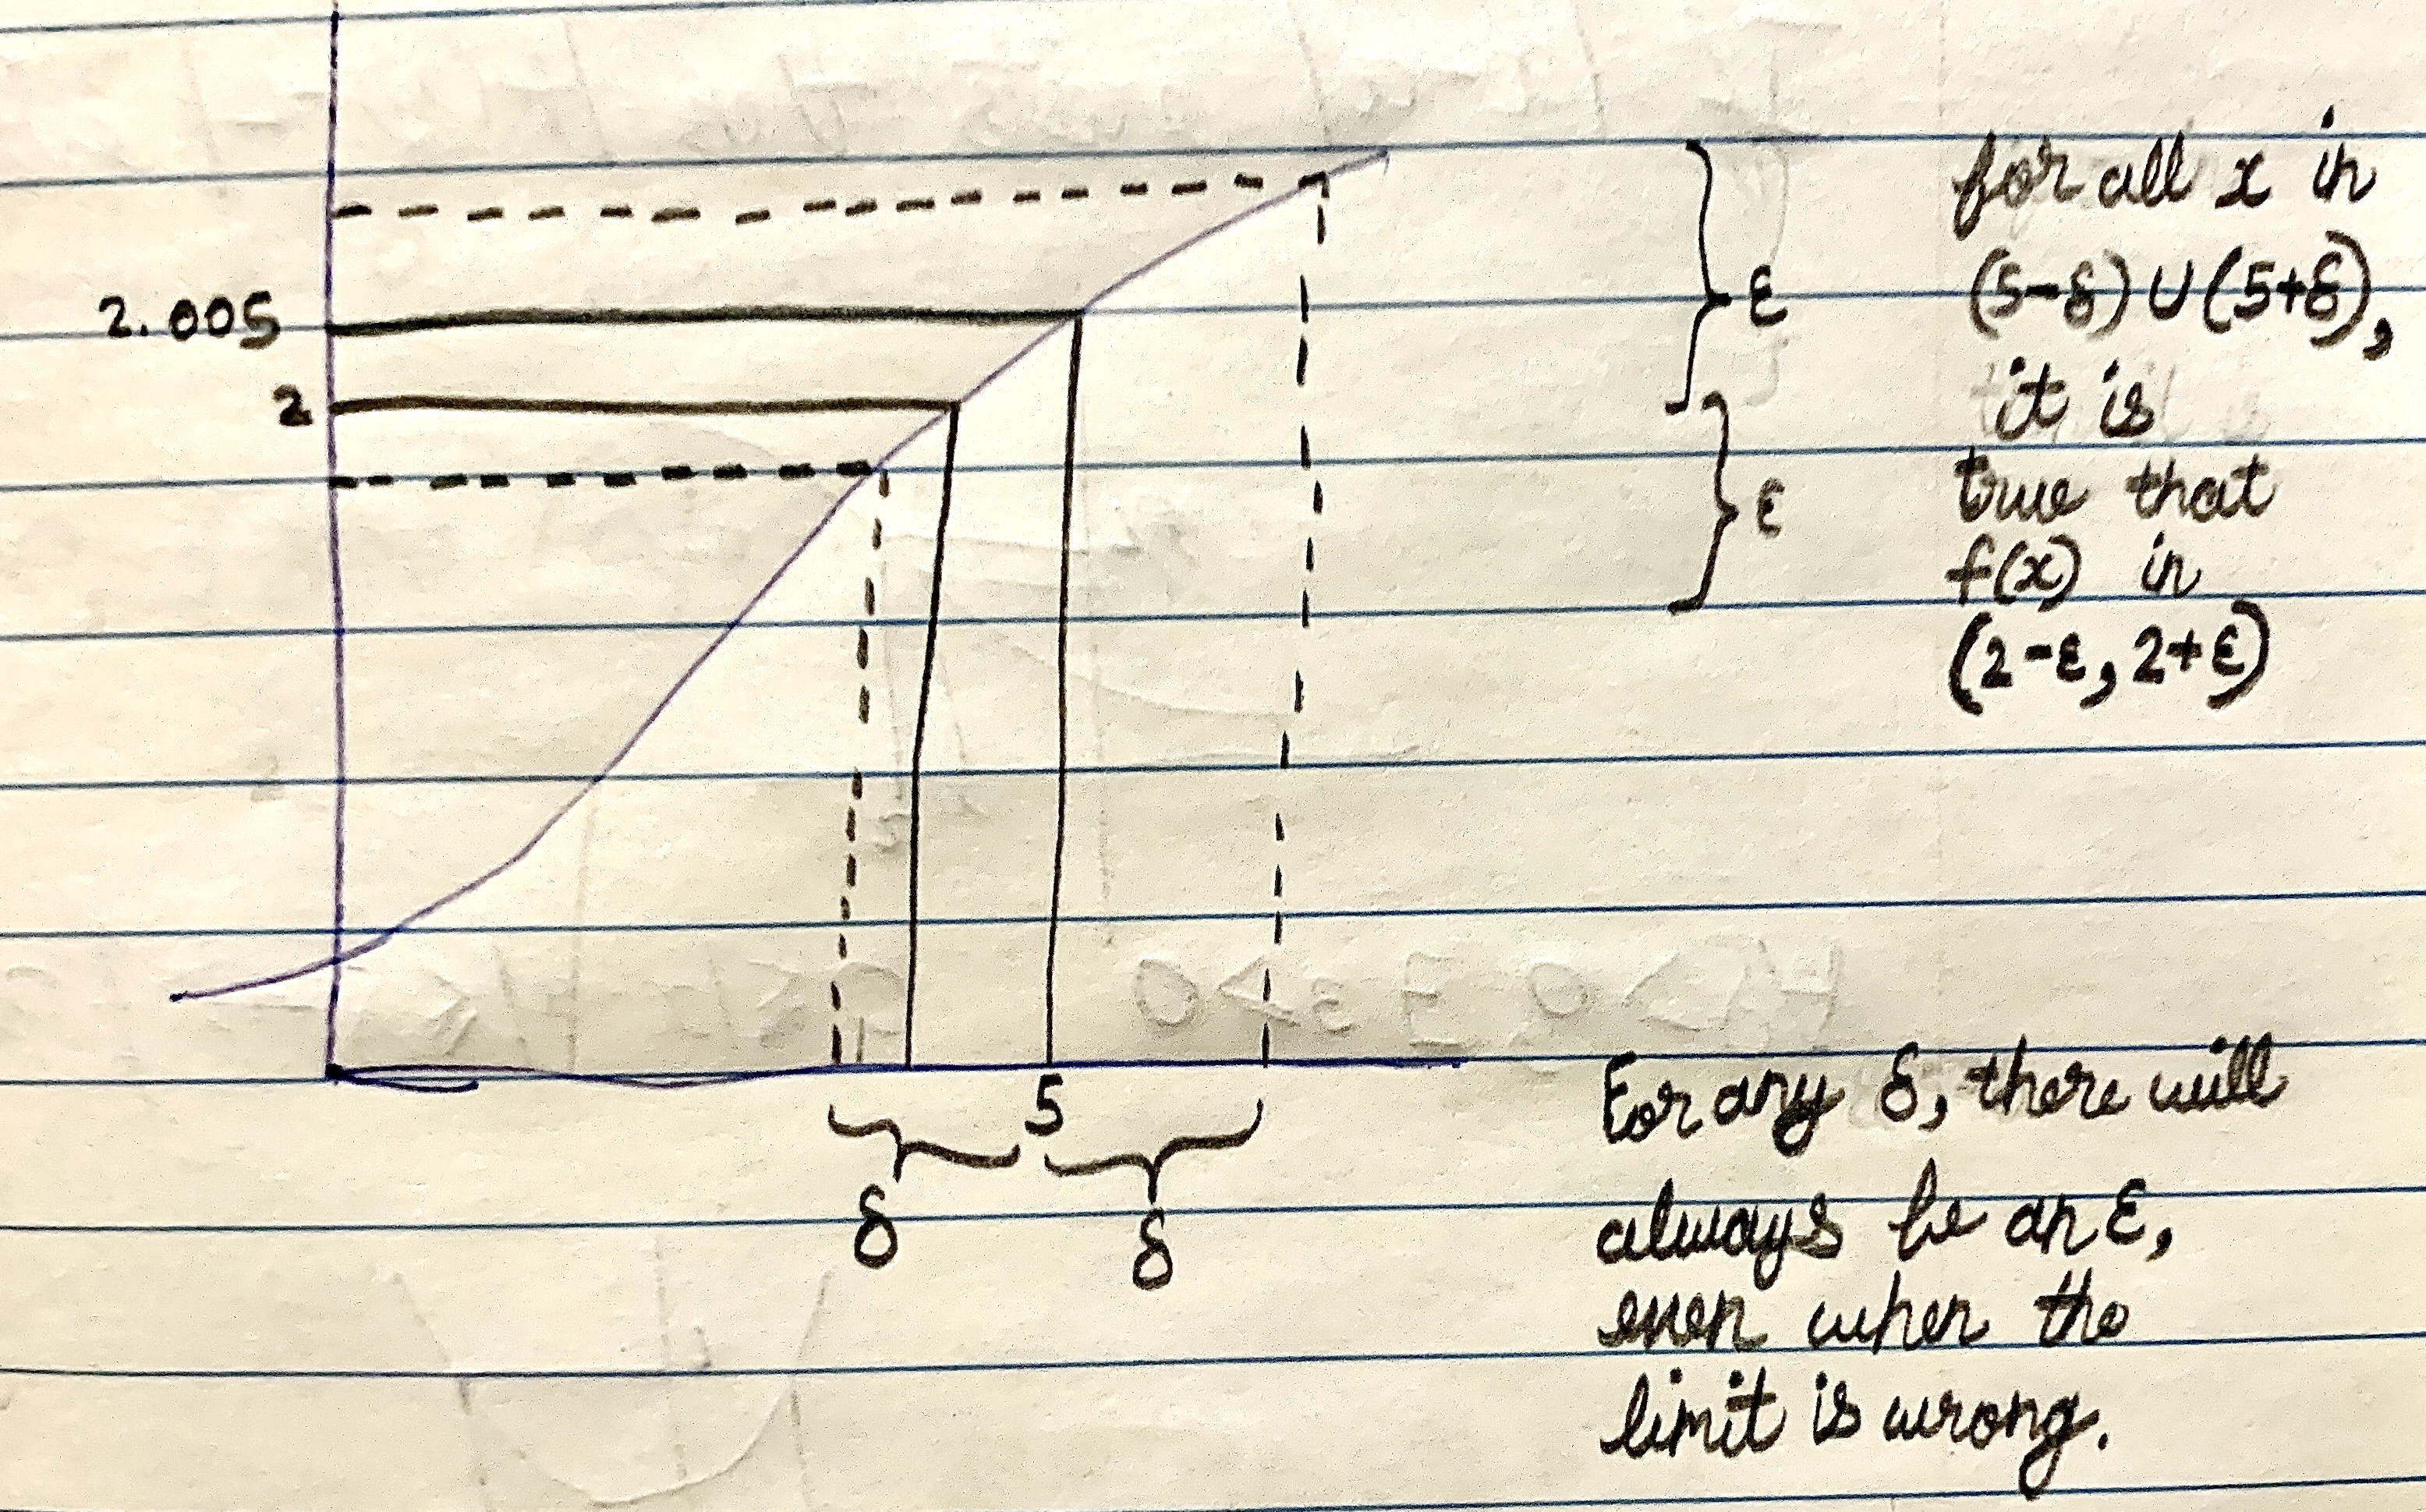 2.005
2
ε
ε
for all x in
(5-δ) ∪ (5+δ),
it is
true that
f(x) in
(2-ε, 2+ε)
5
δ
δ
For any δ, there will
always be an ε,
even when the
limit is wrong.